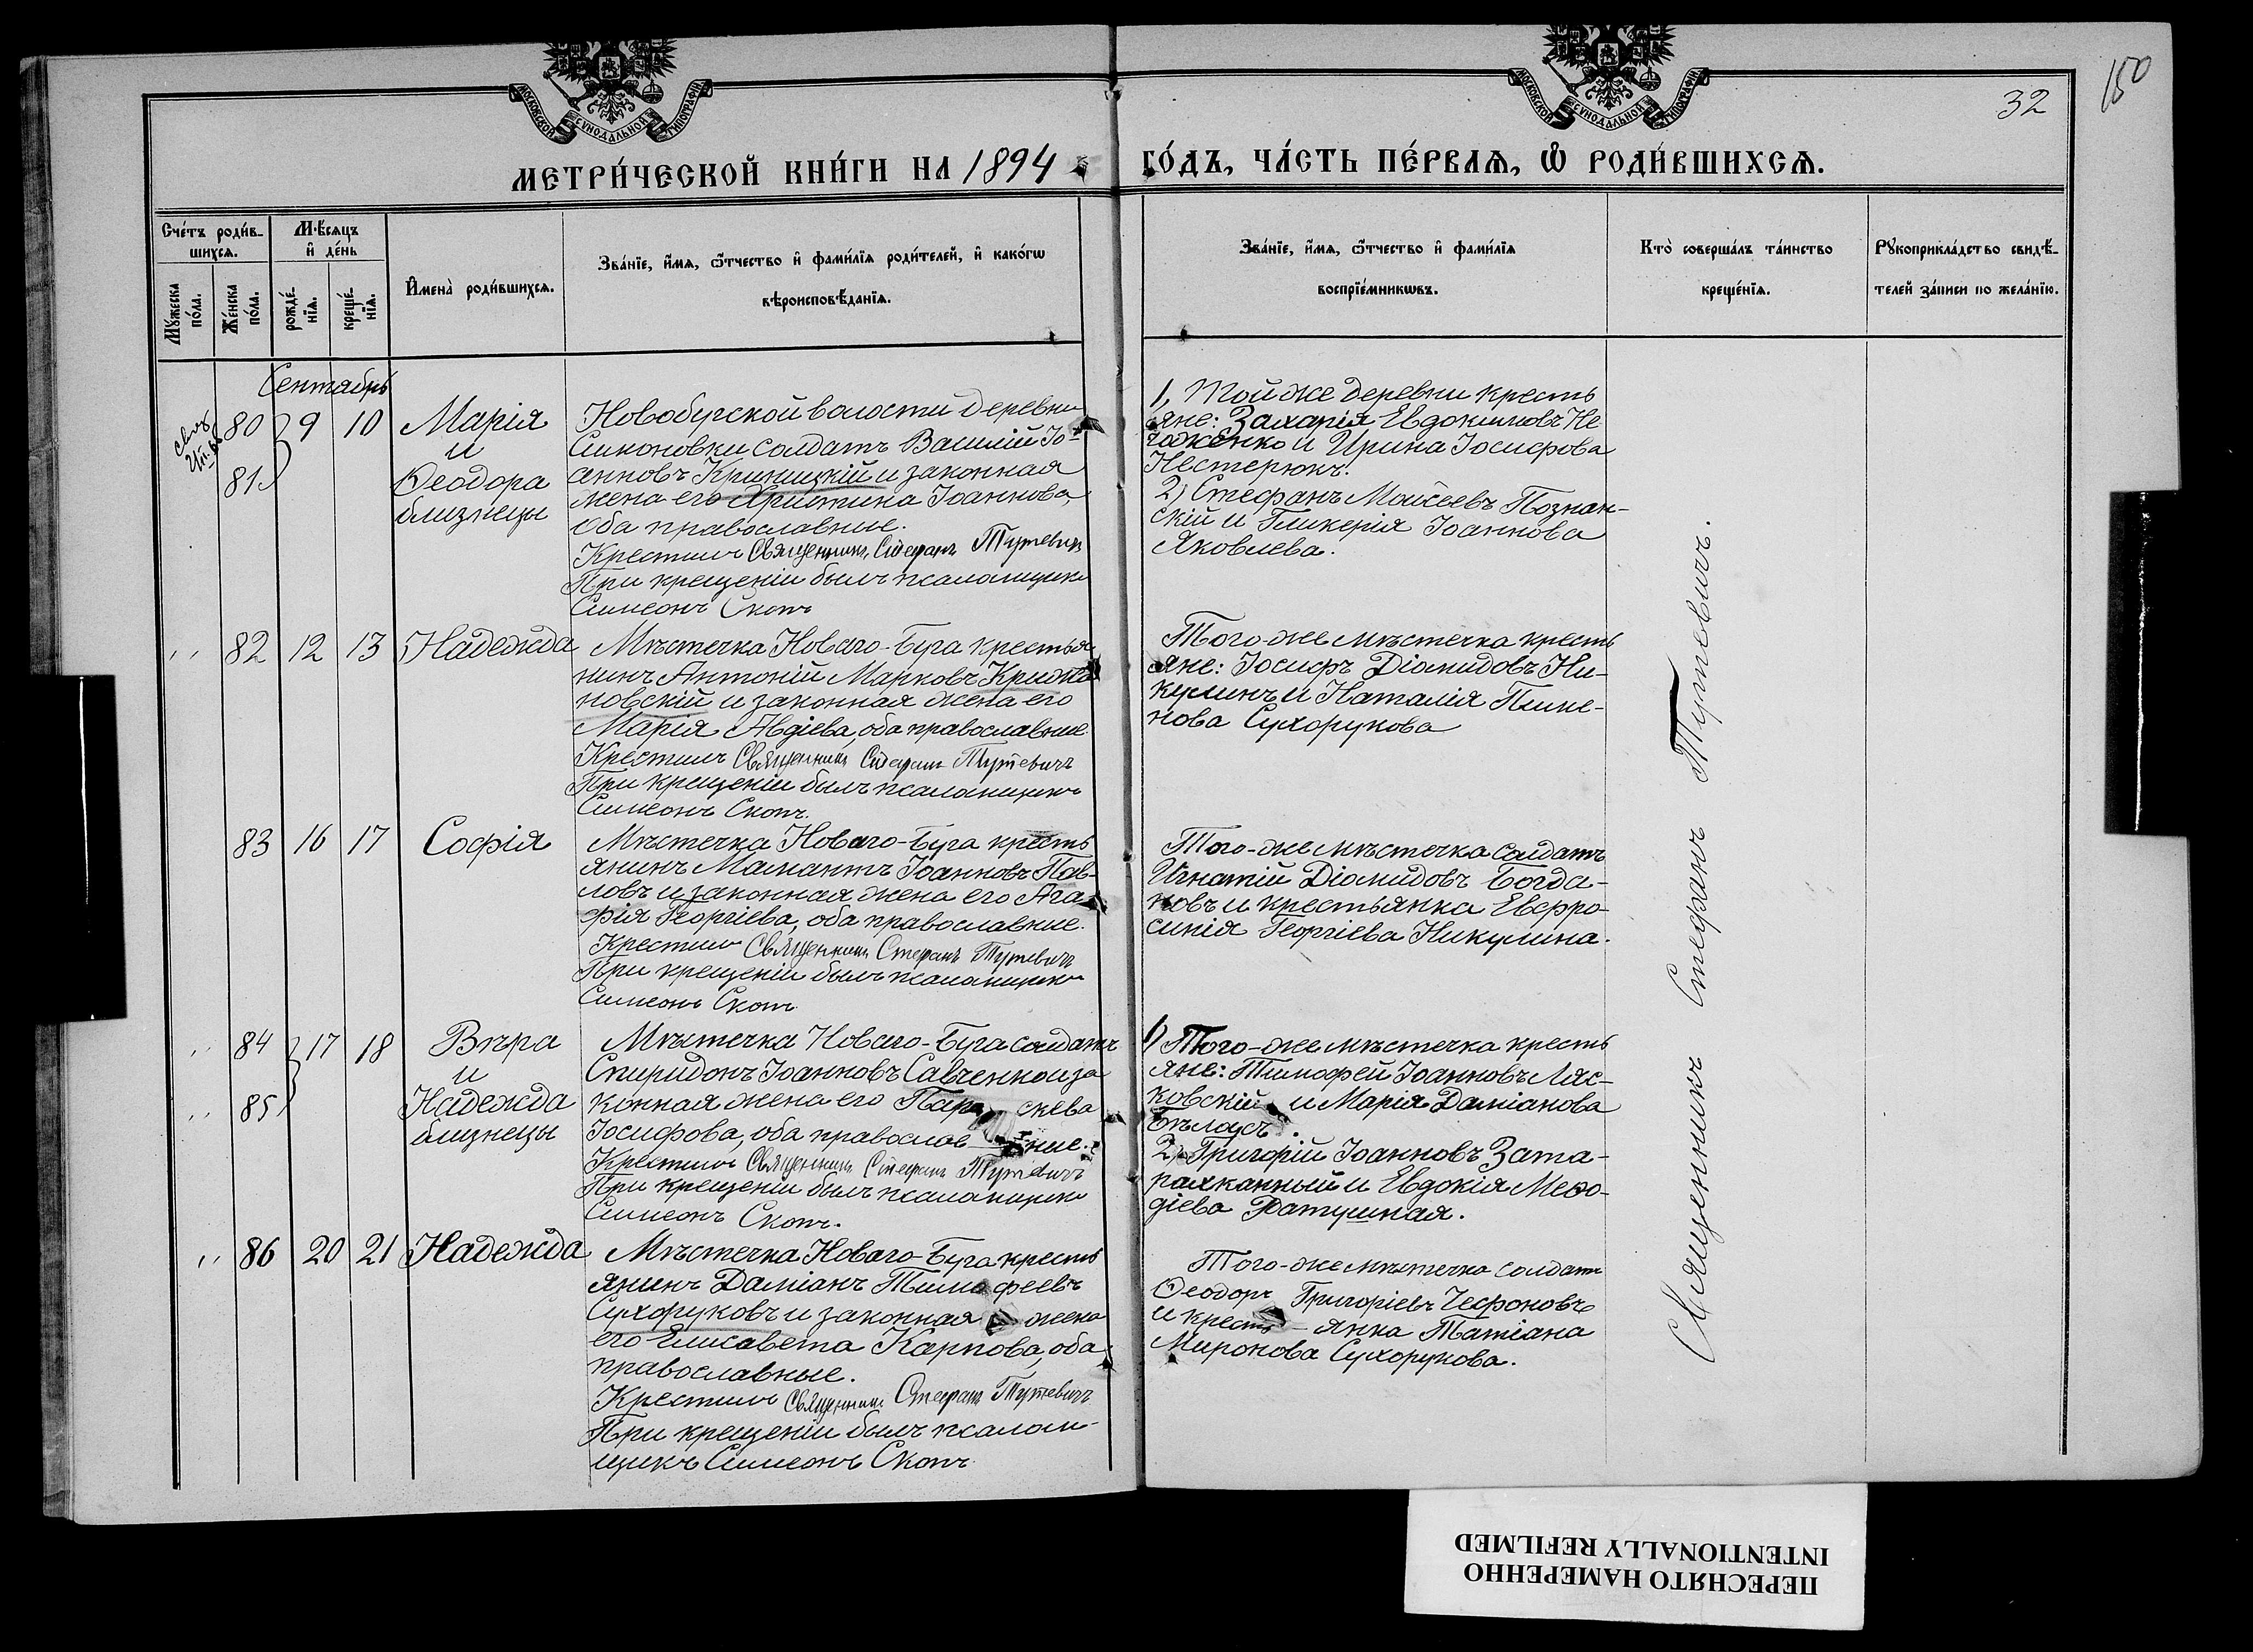 МОСКОВСКОЙ СУНОДАЛЬНОЙ ТИПОГРАФІИ
МОСКОВСКОЙ СУНОДАЛЬНОЙ ТИПОГРАФІИ
150
32
МЕТРИ́ЧЕСКОЙ КНИ́ГИ НА 1894 ГО́ДЪ, ЧА́СТЬ ПЕ́РВАѦ, Ѡ РОДИ́ВШИХСѦ.
Сче́тъ роди́в-
шихсѧ.
Мѣ́сѧцъ
и҆ де́нь
Мꙋ́жеска
по́ла.
Же́нска
по́ла.
рожде́-
нїѧ.
креще́-
нїѧ.
И҆мена̀ роди́вшихсѧ.
Зва́нїе, и҆́мѧ, ѻ҆́тчество и҆ фами́лїѧ роди́телей, и҆ како́гѡ
вѣроисповѣ́данїѧ.
Зва́нїе, и҆́мѧ, ѻ҆́тчество и҆ фами́лїѧ
воспрїе́мникѡвъ.
Кто̀ соверша́лъ та́инство
креще́нїѧ.
Рꙋкоприкла́дство свидѣ́-
телей за́писи по жела́нїю.
Сентябрь
80 9 10 Марія
и
81 Ѳеодора
близнецы
Новобугской волости деревни
Симоновки солдатъ Василій Іо-
анновъ Криницкій и законная
жена его Христина Іоаннова,
оба православные.
Крестилъ Священникъ Стефанъ Тутевичъ
При крещеніи былъ псаломщикъ
Симеонъ Скопъ
1, Той же деревни кресть
яне: Захарія Евдокимовъ Не
и Ирина Іосифова
Нестерюкъ.
2) Стефанъ Моисеевъ Познан-
скій и Гликерія Іоаннова
Яковлева.
" 82 12 13 Надежда
Мѣстечка Новаго-Буга крестья
нинъ Антоній Марковъ Крижа
новскій и законная жена его
Марія Авдіева, оба православные
Крестилъ Священникъ Стефанъ Тутевичъ
При крещеніи былъ псаломщикъ
Симеонъ Скопъ.
Того-же мѣстечка кресть
яне: Іосифъ Діомидовъ Ни-
кулинъ и Наталія Пиме-
нова Сухорукова
83 16 17 Софія
Мѣстечка Новаго-Буга кресть
янинъ Мамантъ Іоанновъ Пав-
ловъ и законная жена его Ага-
фія Георгіева, оба православные.
Крестилъ Священникъ Стефанъ Тутевичъ
При крещеніи былъ псаломщикъ
Симеонъ Скопъ
Того-же мѣстечка солдатъ
Игнатій Діомидовъ Богда-
новъ и крестьянка Евфро-
синія Георгіева Никулина.
" 84 17 18 Вѣра
и
" 85 Надежда
близнецы
Мѣстечка Новаго-Буга солдатъ
Спиридонъ Іоанновъ Савченко и за
конная жена его Пара скева
Іосифова, оба православ ные.
Крестилъ Священникъ Стефанъ Тутевичъ
При крещеніи былъ псаломщикъ
Симеонъ Скопъ.
1) Того-же мѣстечка кресть
яне: Тимофей Іоанновъ Ляс-
ковскій и Марія Даміанова
Бѣлоусъ.
2) Григорій Іоанновъ Зата-
раканный и Евдокія Меѳо-
діева Ратушная.
" 86 20 21 Надежда
Мѣстечка Новаго-Буга кресть
янинъ Даміанъ Тимо феевъ
Сухоруковъ и законная жена
его Елисавета Карпова, оба
православные.
Крестилъ Священникъ Стефанъ Тутевичъ
При крещеніи былъ псалом-
щикъ Симеонъ Скопъ
Того-же мѣстечка солдатъ
Ѳеодоръ Григоріевъ Чефоновъ
и кресть-янка Татіана
Миронова Сухорукова.
Священникъ Стефанъ Тутевичъ.
ПЕРЕСНЯТО НАМЕРЕННО
INTENTIONALLY REFILMED